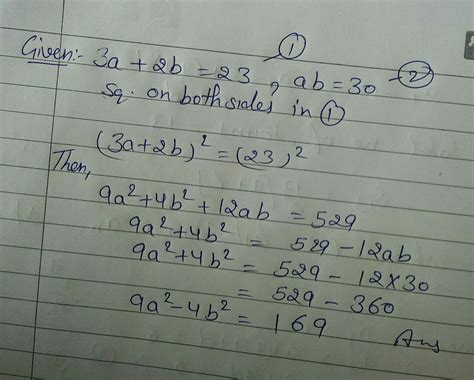 ①
Given:- 3a + 2b = 23 , ab = 30 — ②
Sq. on both sides in ①
(3a+2b)² = (23)²
Then,
9a²+4b²+12ab = 529
9a²+4b² = 529 - 12ab
9a²+4b² = 529 - 12×30
= 529 - 360
9a²-4b² = 169 Ans